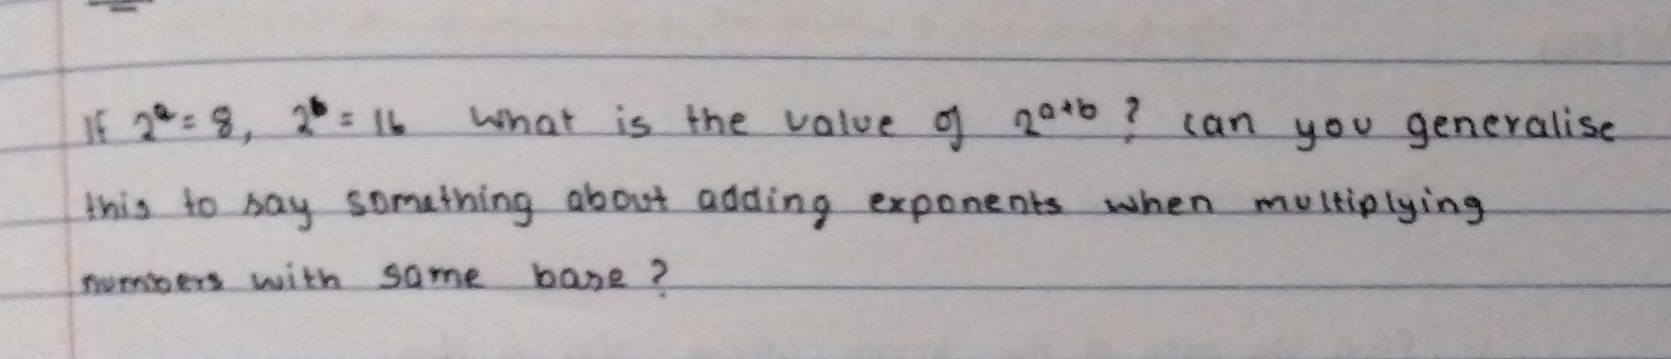 If 2ᵃ = 8, 2ᵇ = 16 what is the value of 2ᵃ⁺ᵇ ? can you generalise
this to say something about adding exponents when multiplying
numbers with same base ?